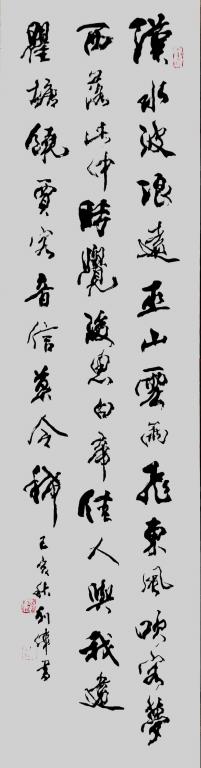 漢水波浪遠巫山雲雨飛東風吹客夢
西落此仲時覺後思白帝佳人與我違
瞿塘饒賈客音信莫令稀
己亥秋偉書